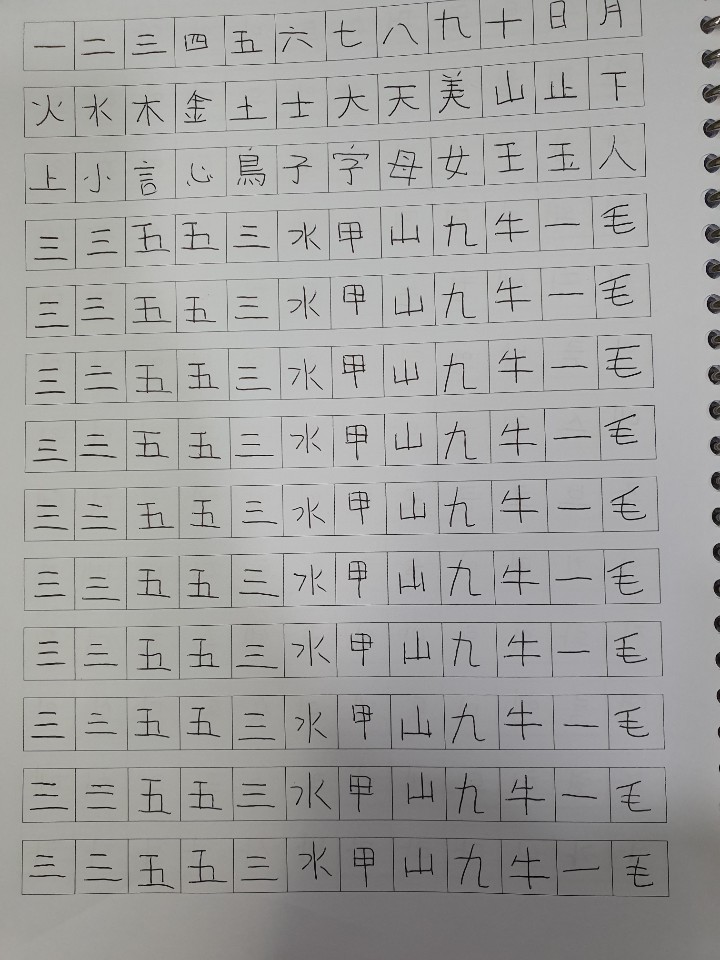 一二三四五六七八九十日月
火水木金土士大天美山止下
上小言心鳥子字母女王玉人
三三五五三水甲山九牛一毛
三三五五三水甲山九牛一毛
三三五五三水甲山九牛一毛
三三五五三水甲山九牛一毛
三三五五三水甲山九牛一毛
三三五五三水甲山九牛一毛
三三五五三水甲山九牛一毛
三三五五三水甲山九牛一毛
三三五五三水甲山九牛一毛
三三五五三水甲山九牛一毛